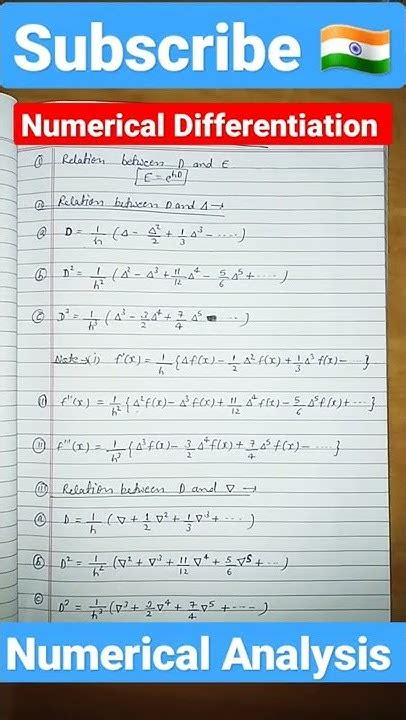 Subscribe 🇮🇳
Numerical Differentiation
① Relation between D and E
E = e^{hD}
② Relation between D and Δ →
ⓐ D = 1/h (Δ - Δ²/2 + 1/3 Δ³ - ....)
ⓑ D² = 1/h² (Δ² - Δ³ + 11/12 Δ⁴ - 5/6 Δ⁵ + ....)
ⓒ D³ = 1/h³ (Δ³ - 3/2 Δ⁴ + 7/4 Δ⁵ ....)
Note → (i) f'(x) = 1/h {Δf(x) - 1/2 Δ²f(x) + 1/3 Δ³f(x) - ....}
ⓘⓘ f''(x) = 1/h² {Δ²f(x) - Δ³f(x) + 11/12 Δ⁴f(x) - 5/6 Δ⁵f(x) + ....}
ⓘⓘⓘ f'''(x) = 1/h³ {Δ³f(x) - 3/2 Δ⁴f(x) + 7/4 Δ⁵f(x) - ....}
ⓘⓘⓘ Relation between D and ∇ →
ⓐ D = 1/h (∇ + 1/2 ∇² + 1/3 ∇³ + ....)
ⓑ D² = 1/h² (∇² + ∇³ + 11/12 ∇⁴ + 5/6 ∇⁵ + ....)
ⓒ D³ = 1/h³ (∇³ + 3/2 ∇⁴ + 7/4 ∇⁵ + ....)
Numerical Analysis